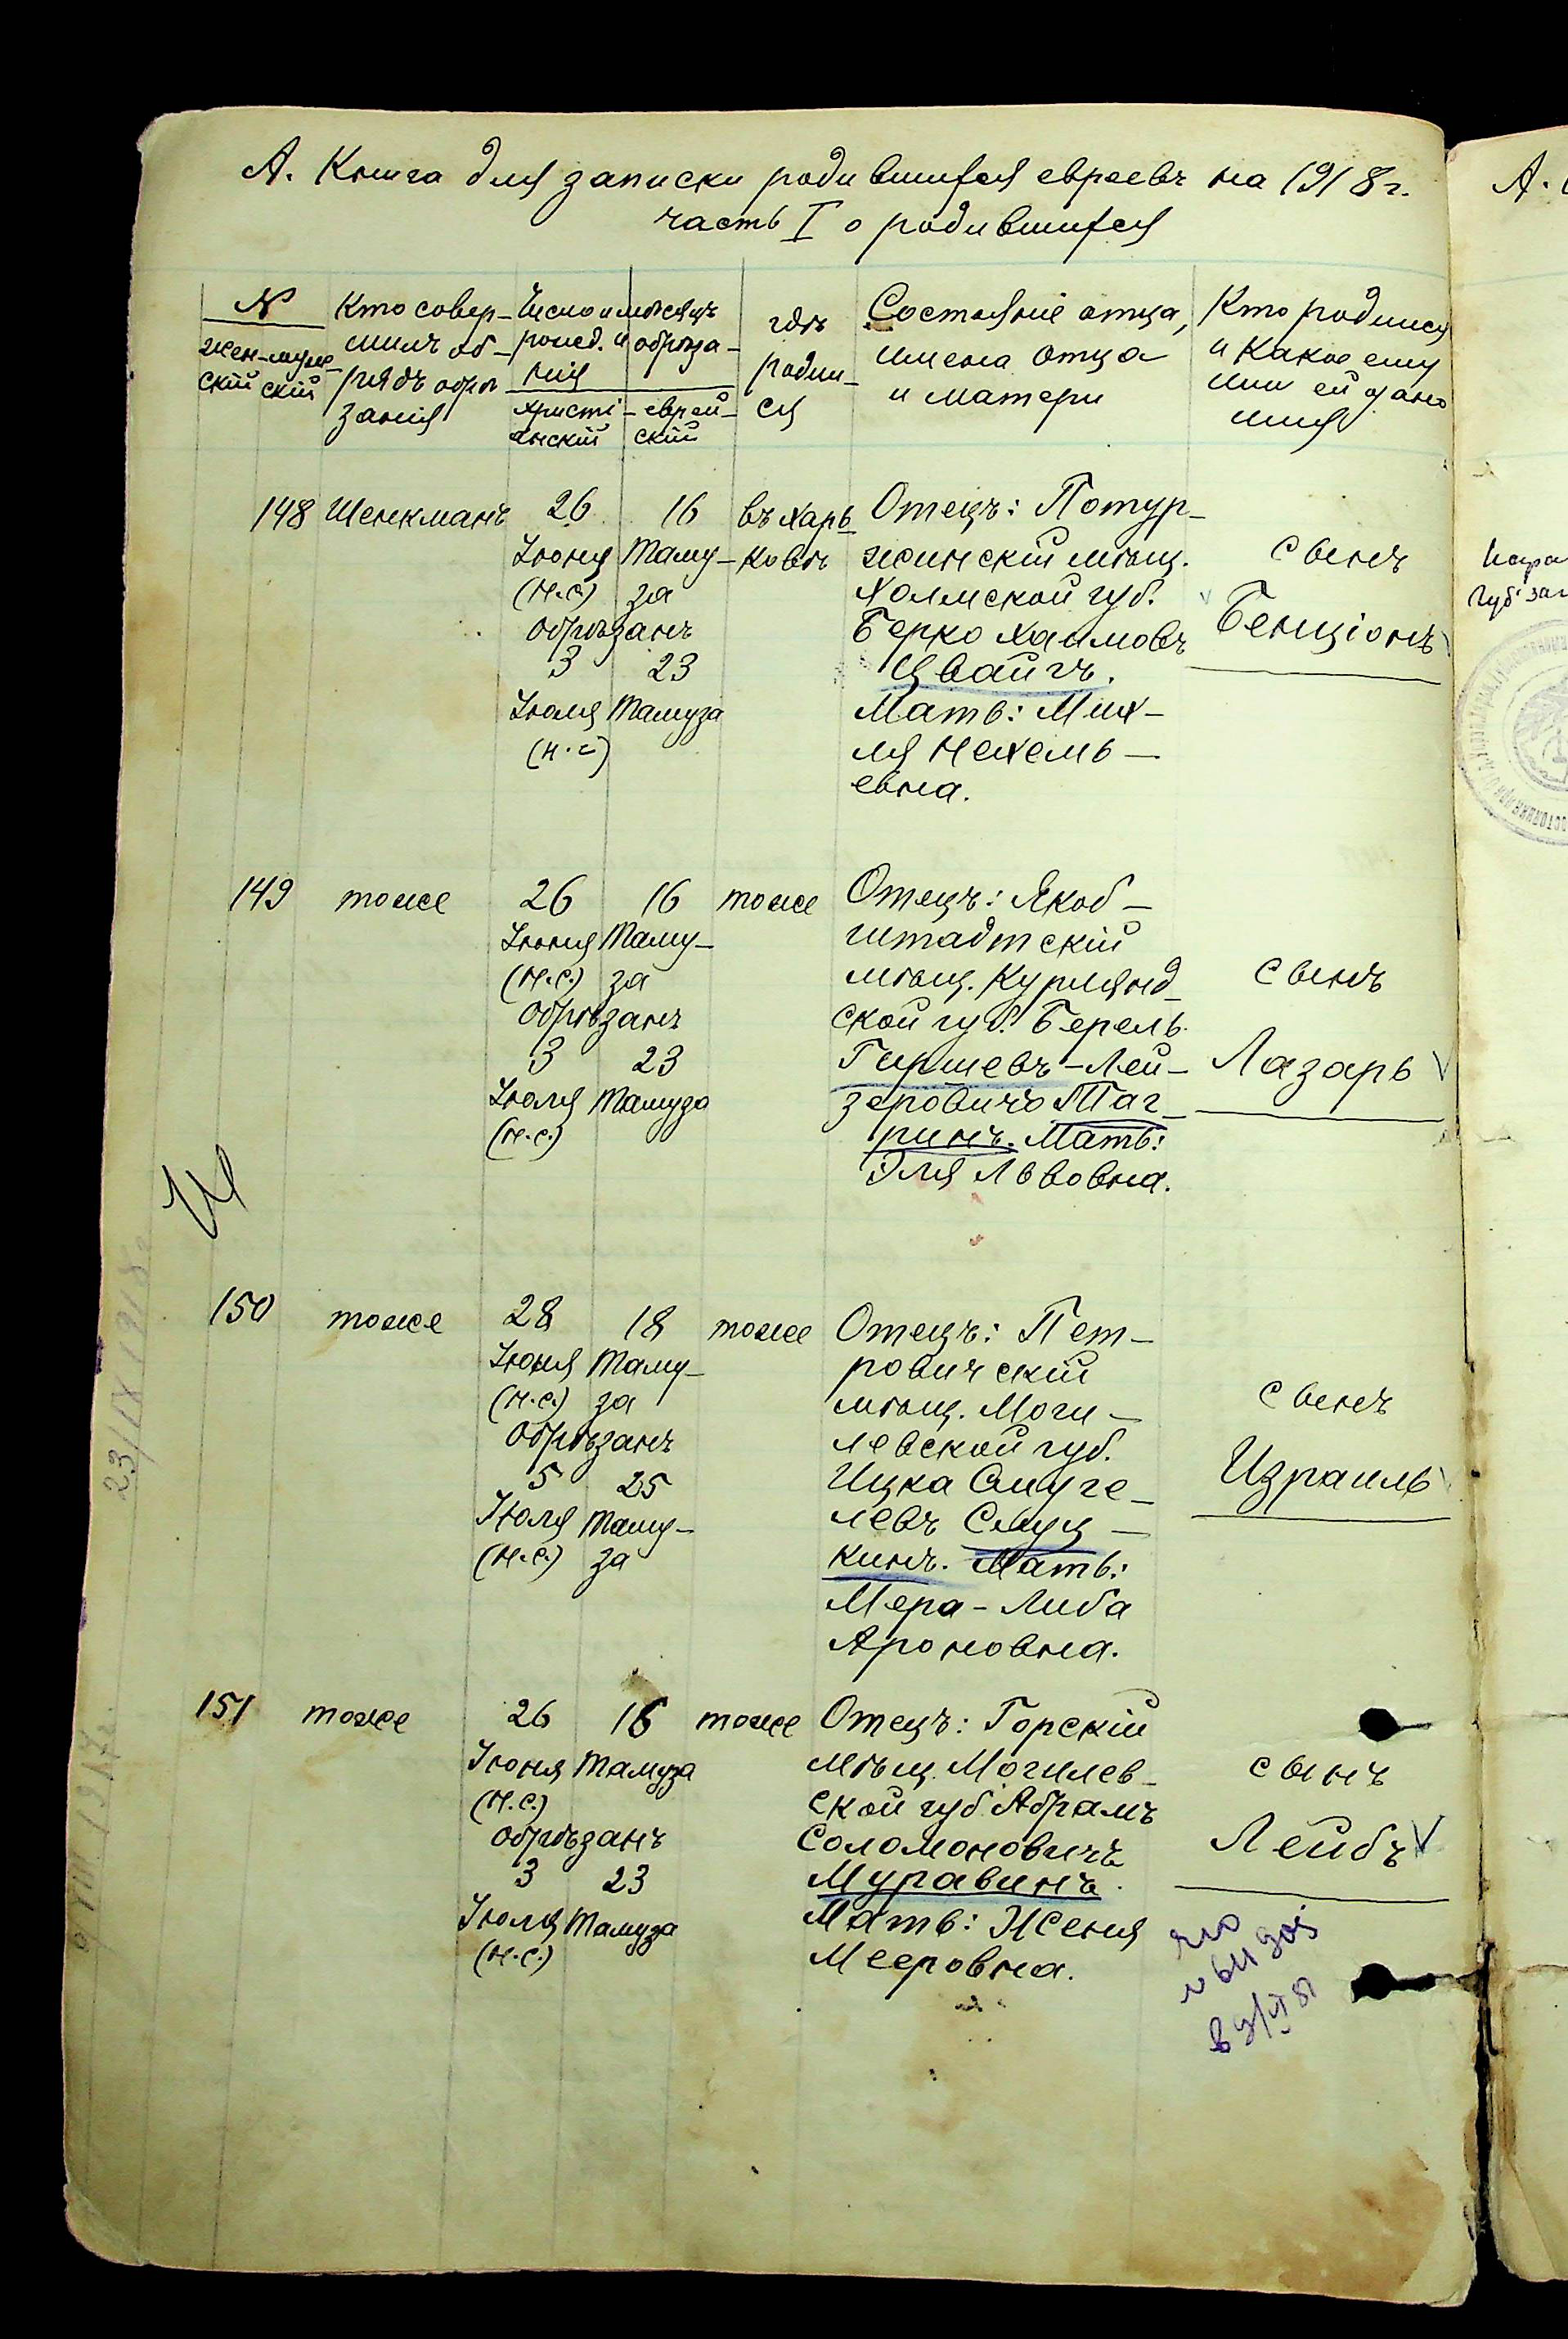 А. Книга для записки родившихся евреевъ на 1918 г.
часть I о родившихся
№
жен- муже-
скій скій
Кто совер-
шилъ об-
рядъ обрѣ
занія
Число и мѣсяцъ
рожд. и обрѣза-
нія
христі-
анскій
еврей-
скій
гдѣ
родил-
ся
Состояніе отца,
имена отца
и матери
Кто родился
и какое ему
или ей дано
имя
148 Шенкманъ
26
Іюня
(н.с.)
16
Таму-
за
Обрѣзанъ
3 23
Іюля Тамуза
(н.с)
въ Харь
ковѣ
Отецъ: Потур-
жинскій мѣщ.
Холмской губ.
Берко Хаимовъ
Цвайгъ.
Мать: Мих-
ля Нехемь-
евна.
сынъ
Бенціонъ
149 тоже
26
Іюня
(н.с.)
16
Таму-
за
Обрѣзанъ
3 23
Іюля Тамуза
(н.с.)
тоже
Отецъ: Якоб-
штадтскій
мѣщ. Курлянд-
ской губ. Берель
Гиршевъ-Лей-
зеровичъ Таг-
ринъ. Мать:
Эля Львовна.
сынъ
Лазарь
150 тоже
28
Іюня
(н.с.)
18
Таму-
за
Обрѣзанъ
5 25
Іюля Таму-
(н.с.) за
тоже
Отецъ: Пет-
ровичскій
мѣщ. Моги-
левской губ.
Ицка Смуге-
левъ Слуц-
кинъ. Мать:
Мера-Либа
Ароновна.
сынъ
Израиль
151 тоже
26
Іюня
(н.с.)
16
Тамуза
Обрѣзанъ
3 23
Іюля Тамуза
(н.с.)
тоже
Отецъ: Горскій
мѣщ. Могилев-
ской губ. Абрамъ
Соломоновичъ
Муравинъ.
Мать: Женя
Мееровна.
сынъ
Лейбъ
23/IX 1918 г.
А.